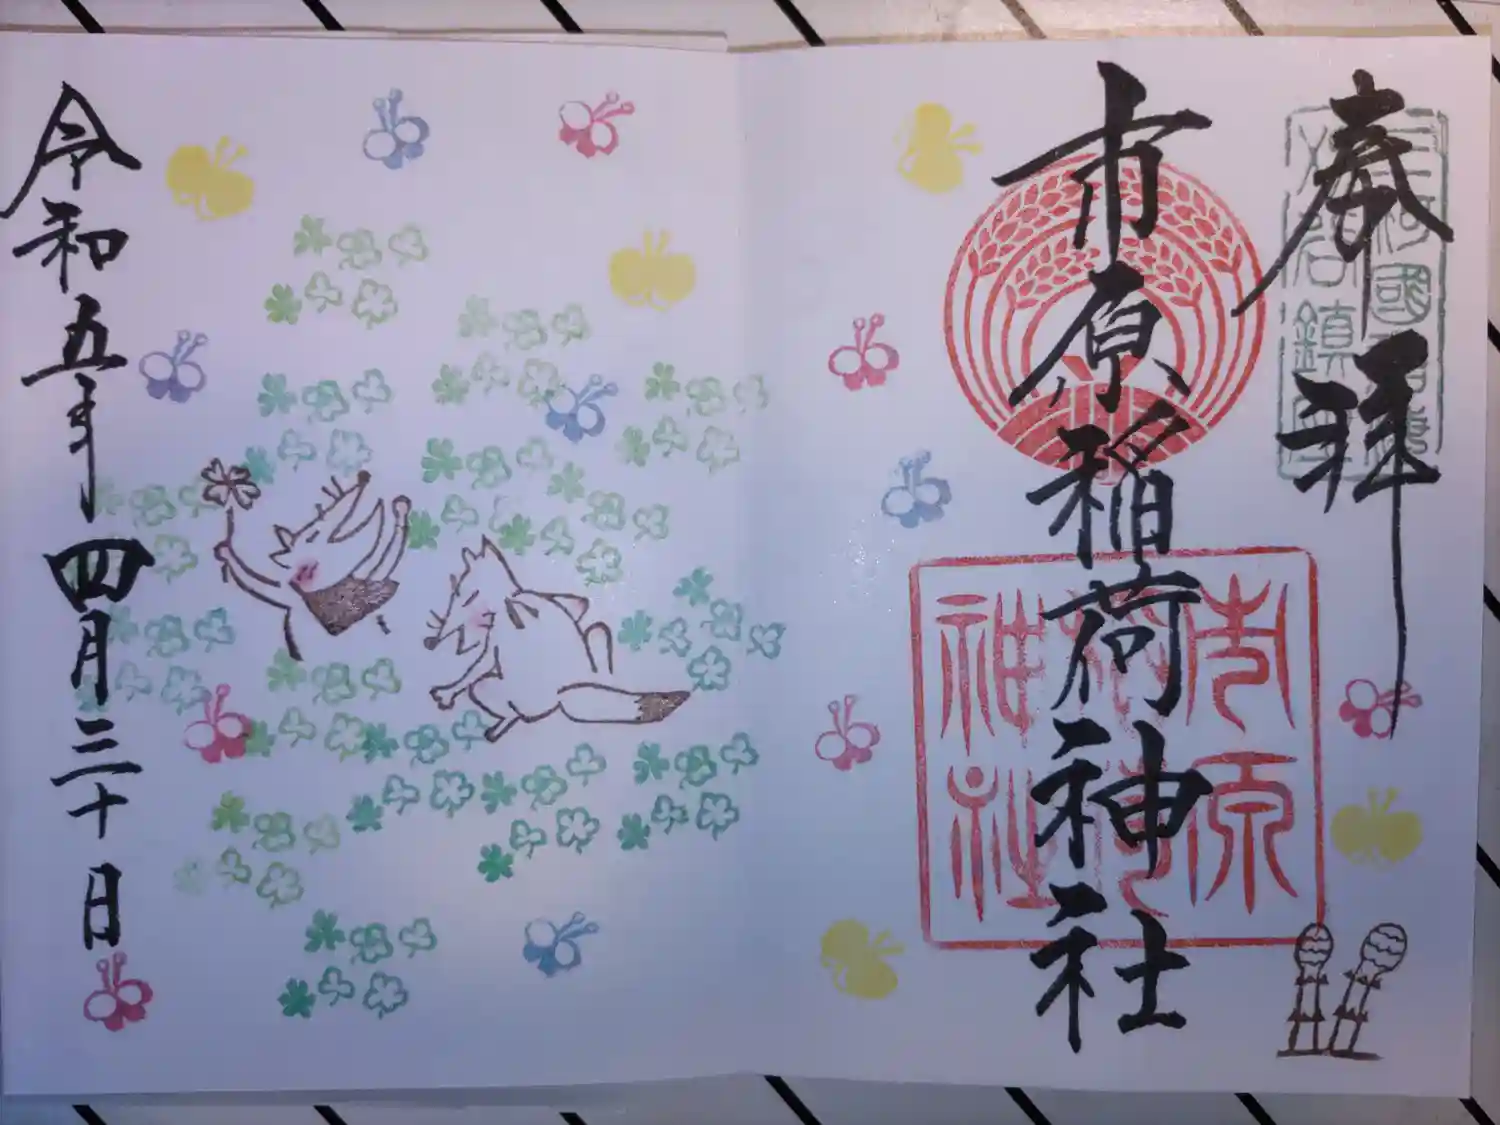 奉拝
市原稲荷神社
市原
稲荷
神社
令和五年四月三十日